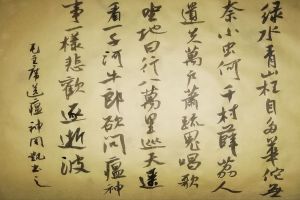 綠水青山枉自多華佗無
奈小虫何千村薜荔人
遺矢萬戶蕭疏鬼唱歌
坐地日行八萬里巡天遙
看一千河牛郎欲问瘟神
事一樣悲歡逐逝波
毛主席送瘟神